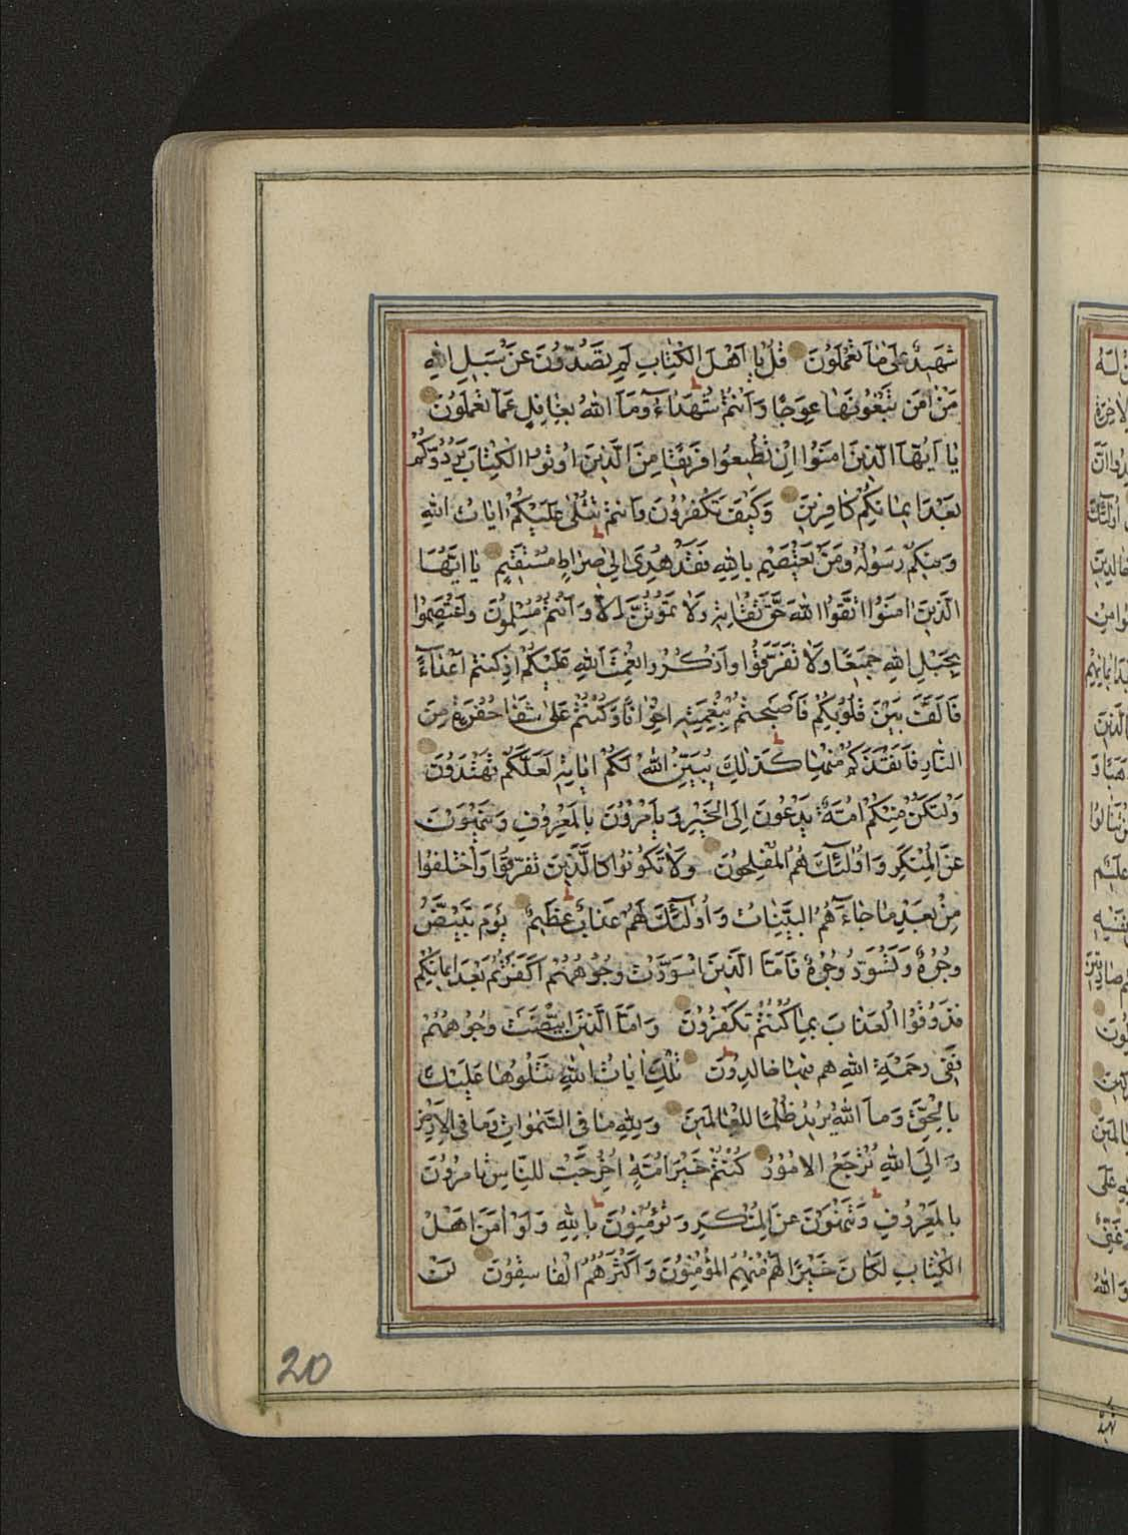 شَهِيدٌ عَلَىٰ مَا تَعْمَلُونَ قُلْ يَا اَهْلَ الْكِتَابِ لِمَ تَصُدُّونَ عَنْ سَبِيلِ اللهِ
مَنْ اٰمَنَ تَبْغُونَهَا عِوَجًا وَاَنْتُمْ شُهَدَاءُ وَمَا اللهُ بِغَافِلٍ عَمَّا تَعْمَلُونَ
يَا اَيُّهَا الَّذِينَ اٰمَنُوا اِنْ تُطِيعُوا فَرِيقًا مِنَ الَّذِينَ اُوتُوا الْكِتَابَ يَرُدُّوكُمْ
بَعْدَ اِيمَانِكُمْ كَافِرِينَ وَكَيْفَ تَكْفُرُونَ وَاَنْتُمْ تُتْلَىٰ عَلَيْكُمْ اٰيَاتُ اللهِ
وَفِيكُمْ رَسُولُهُ وَمَنْ يَعْتَصِمْ بِاللهِ فَقَدْ هُدِيَ اِلَىٰ صِرَاطٍ مُسْتَقِيمٍ يَا اَيُّهَا
الَّذِينَ اٰمَنُوا اتَّقُوا اللهَ حَقَّ تُقَاتِهِ وَلَا تَمُوتُنَّ اِلَّا وَاَنْتُمْ مُسْلِمُونَ وَاعْتَصِمُوا
بِحَبْلِ اللهِ جَمِيعًا وَلَا تَفَرَّقُوا وَاذْكُرُوا نِعْمَتَ اللهِ عَلَيْكُمْ اِذْ كُنْتُمْ اَعْدَاءً
فَاَلَّفَ بَيْنَ قُلُوبِكُمْ فَاَصْبَحْتُمْ بِنِعْمَتِهِ اِخْوَانًا وَكُنْتُمْ عَلَىٰ شَفَا حُفْرَةٍ مِنَ
النَّارِ فَاَنْقَذَكُمْ مِنْهَا كَذَلِكَ يُبَيِّنُ اللهُ لَكُمْ اٰيَاتِهِ لَعَلَّكُمْ تَهْتَدُونَ
وَلْتَكُنْ مِنْكُمْ اُمَّةٌ يَدْعُونَ اِلَى الْخَيْرِ وَيَاْمُرُونَ بِالْمَعْرُوفِ وَيَنْهَوْنَ
عَنِ الْمُنْكَرِ وَاُولٰئِكَ هُمُ الْمُفْلِحُونَ وَلَا تَكُونُوا كَالَّذِينَ تَفَرَّقُوا وَاخْتَلَفُوا
مِنْ بَعْدِ مَا جَاءَهُمُ الْبَيِّنَاتُ وَاُولٰئِكَ لَهُمْ عَذَابٌ عَظِيمٌ يَوْمَ تَبْيَضُّ
وُجُوهٌ وَتَسْوَدُّ وُجُوهٌ فَاَمَّا الَّذِينَ اسْوَدَّتْ وُجُوهُهُمْ اَكَفَرْتُمْ بَعْدَ اِيمَانِكُمْ
فَذُوقُوا الْعَذَابَ بِمَا كُنْتُمْ تَكْفُرُونَ وَاَمَّا الَّذِينَ ابْيَضَّتْ وُجُوهُهُمْ
فَفِي رَحْمَةِ اللهِ هُمْ فِيهَا خَالِدُونَ تِلْكَ اٰيَاتُ اللهِ نَتْلُوهَا عَلَيْكَ
بِالْحَقِّ وَمَا اللهُ يُرِيدُ ظُلْمًا لِلْعَالَمِينَ وَلِلّٰهِ مَا فِي السَّمٰوَاتِ وَمَا فِي الْاَرْضِ
وَاِلَى اللهِ تُرْجَعُ الْاُمُورُ كُنْتُمْ خَيْرَ اُمَّةٍ اُخْرِجَتْ لِلنَّاسِ تَاْمُرُونَ
بِالْمَعْرُوفِ وَتَنْهَوْنَ عَنِ الْمُنْكَرِ وَتُؤْمِنُونَ بِاللهِ وَلَوْ اٰمَنَ اَهْلُ
الْكِتَابِ لَكَانَ خَيْرًا لَهُمْ مِنْهُمُ الْمُؤْمِنُونَ وَاَكْثَرُهُمُ الْفَاسِقُونَ لَنْ
20